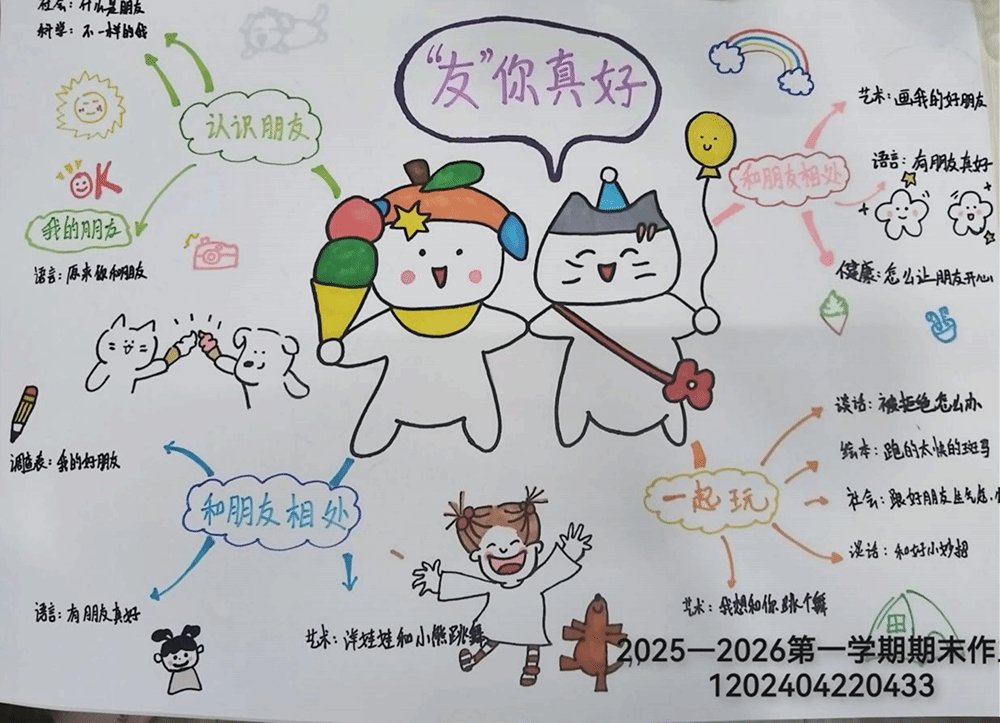 社会：什么是朋友
科学：不一样的我
“友”你真好
认识朋友
OK
我的朋友
语言：原来你和朋友
调查表：我的好朋友
和朋友相处
语言：有朋友真好
艺术：洋娃娃和小熊跳舞
和朋友相处
艺术：画我的好朋友
语言：有朋友真好
健康：怎么让朋友开心
一起玩
谈话：被拒绝怎么办
绘本：跑的太快的斑马
社会：跟好朋友生气后
谈话：和好小妙招
艺术：我想和你跳个舞
2025—2026第一学期期末作
1202404220433